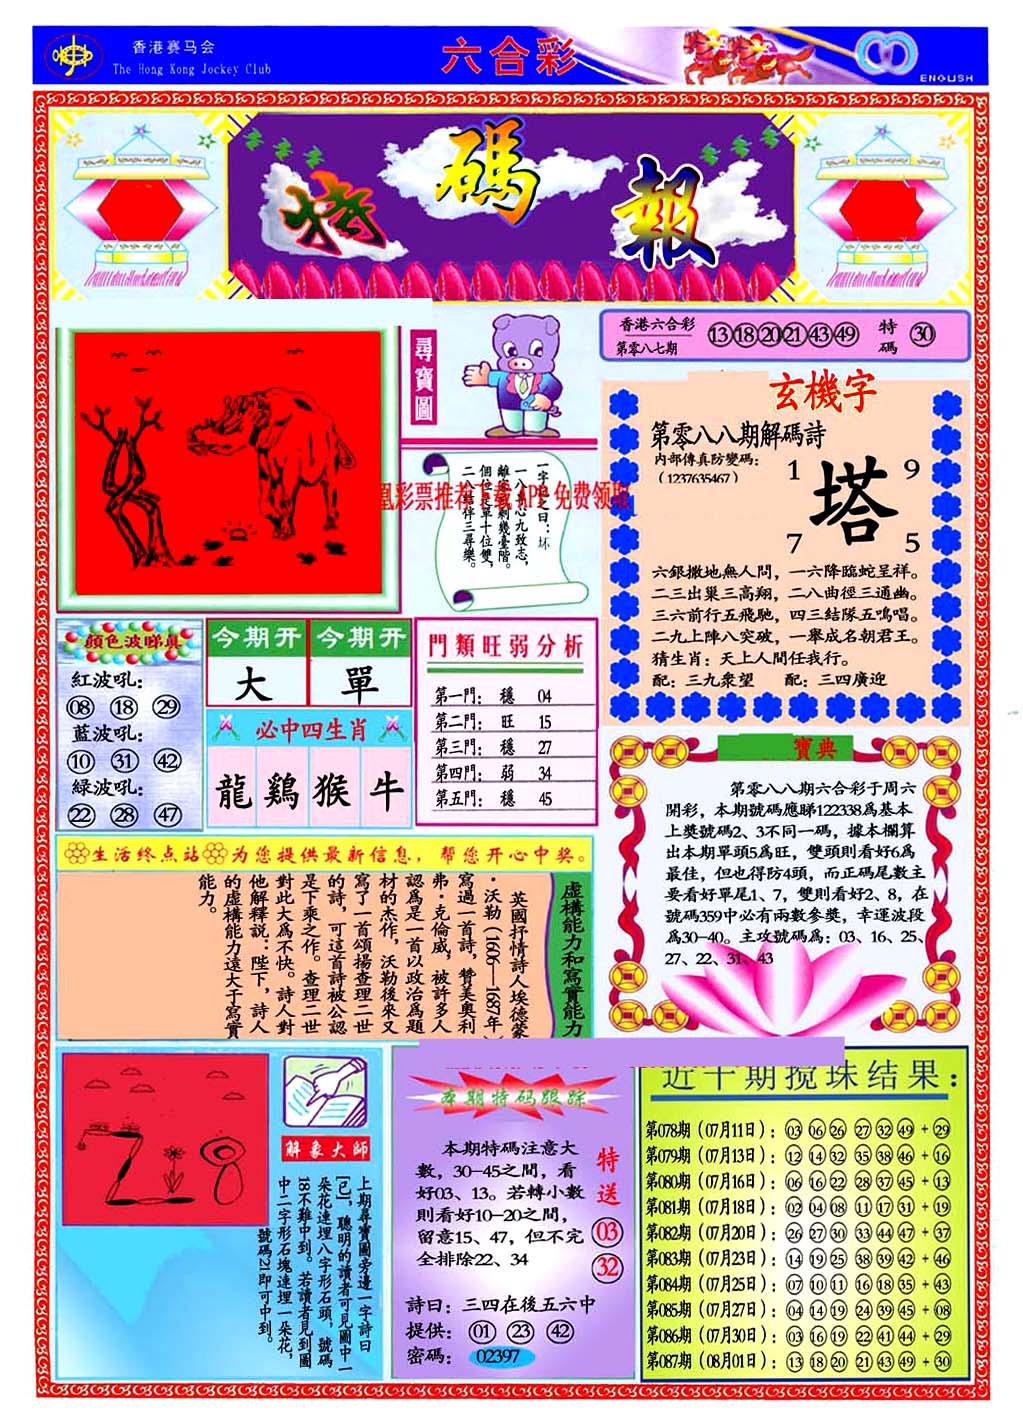 香港赛马会
The Hong Kong Jockey Club
六合彩
ENGLISH
特碼報
尋寶圖
香港六合彩
第零八七期
13 18 20 21 43 49
特碼 30
玄機字
第零八八期解碼詩
内部傳真防變碼：
（1237635467）
1 9
塔
7 5
六銀撒地無人問，一六降臨蛇呈祥。
二三出巢三高翔，二八曲徑三通幽。
三六前行五飛馳，四三結隊五鳴唱。
二九上陣八突破，一舉成名朝君王。
猜生肖：天上人間任我行。
配：三九衆望 配：三四廣迎
一字記之曰：坏
一八專心九致志，
個位是單十位雙，
二八結伴三尋樂。
彩票推荐下载APP免费领取
顔色波睇真
紅波吼：
08 18 29
藍波吼：
10 31 42
緑波吼：
22 28 47
今期开 今期开
大 單
必中四生肖
龍 鷄 猴 牛
門類旺弱分析
第一門： 穩 04
第二門： 旺 15
第三門： 穩 27
第四門： 弱 34
第五門： 穩 45
寶典
第零八八期六合彩于周六
開彩，本期號碼應睇122338爲基本
上獎號碼2、3不同一碼，據本欄算
出本期單頭5爲旺，雙頭則看好6爲
最佳，但也得防4頭，而正碼尾數主
要看好單尾1、7，雙則看好2、8，在
號碼359中必有兩數參獎，幸運波段
爲30-40。主攻號碼爲：03、16、25、
27、22、31、43
生活终点站 为您提供最新信息，帮您开心中奖。
虚構能力和寫實能力
英國抒情詩人埃德蒙
·沃勒（1606—1687年）
寫過一首詩，贊美奥利
弗·克倫威，被許多人
認爲是一首以政治爲題
材的杰作，沃勒後來又
寫了一首頌揚查理二世
的詩，可這首詩被公認
是下乘之作。查理二世
對此大爲不快。詩人對
他解釋説：陛下，詩人
的虚構能力遠大于寫實
能力。
解象大師
上期尋寶圖旁邊一字詩曰
[心]，聰明的讀者可見圖中一
朵花連埋八字形石頭，號碼
18不難中到。若讀者見到圖
中二字形石塊連埋一朵花，
號碼21即可中到。
本期特码跟踪
本期特碼注意大
數，30-45之間，看
好03、13。若轉小數
則看好10-20之間，
留意15、47，但不完
全排除22、34
特送
03
32
詩曰：三四在後五六中
提供： 01 23 42
密碼： 02397
近十期搅珠结果：
第078期（07月11日）： 03 06 26 27 32 49 + 29
第079期（07月13日）： 12 14 32 35 38 46 + 16
第080期（07月16日）： 06 16 22 28 37 45 + 13
第081期（07月18日）： 02 04 08 11 17 31 + 19
第082期（07月20日）： 26 27 30 33 44 47 + 37
第083期（07月23日）： 14 19 25 38 39 42 + 46
第084期（07月25日）： 07 10 11 16 18 35 + 43
第085期（07月27日）： 04 14 19 24 39 45 + 08
第086期（07月30日）： 03 16 19 22 41 44 + 29
第087期（08月01日）： 13 18 20 21 43 49 + 30